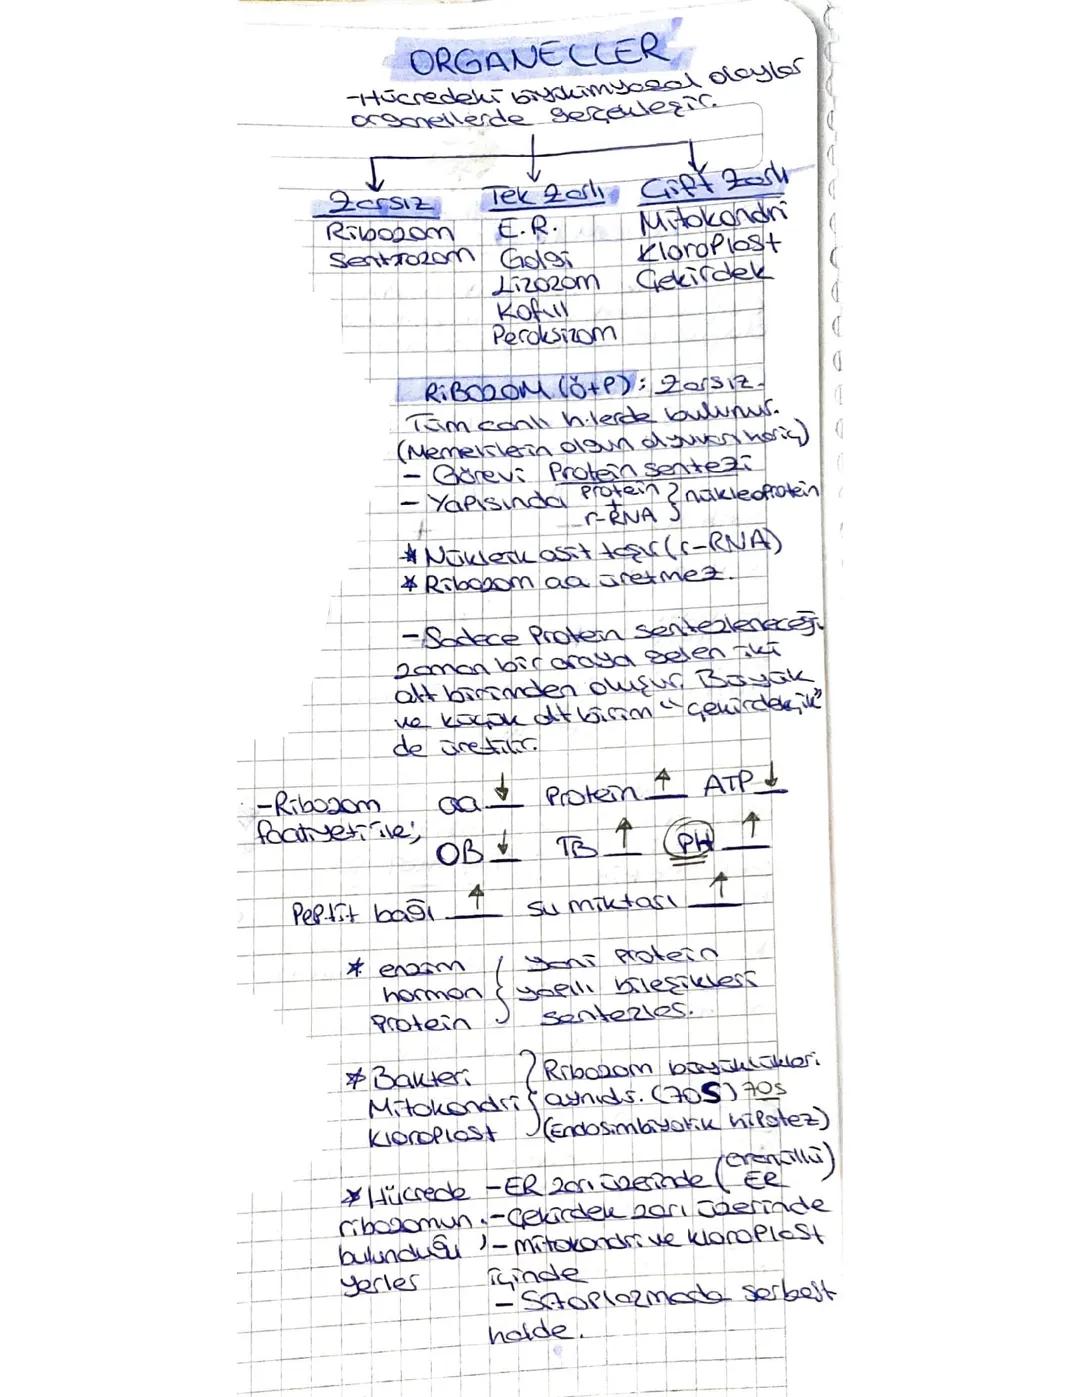 ORGANELLER
-Hücredeki biyokimyasal olaylar
organellerde gerçekleşir.
Zarsız
Ribozom
Sentrozom
Tek Zarlı
E.R.
Golgi
Lizozom
Koful
Peroksizom
Çift Zarlı
Mitokondri
Kloroplast
Çekirdek
RİBOZOM (Ö+P): Zarsız.
Tüm canlı h.lerde bulunur.
(Memelilerin olgun alyuvarı hariç)
- Görevi Protein sentezi
- Yapısında Protein + r-RNA } nükleoprotein
* Nükleik asit taşır (r-RNA)
* Ribozom aa üretmez.
-Sadece Protein sentezleneceği
zaman bir araya gelen iki
alt birimden oluşur. Büyük
ve küçük alt birim "çekirdekçik"
de üretilir.
-Ribozom faaliyeti ile;
aa ↓ Protein ↑ ATP ↓
OB ↓ TB ↑ PH ↑
Peptit bağı ↑ su miktarı ↑
* enzim
hormon
Protein
} yani protein
yapılı bileşikleri
sentezler.
* Bakteri
Mitokondri
Kloroplast
} Ribozom büyüklükleri
aynıdır. (70S) 70s
(Endosimbiyotik hipotez)
* Hücrede
ribozomun
bulunduğu
yerler
-ER zarı üzerinde (Granüllü ER)
-Çekirdek zarı üzerinde
-mitokondri ve kloroplast
içinde
- Sitoplazmada serbest
halde.